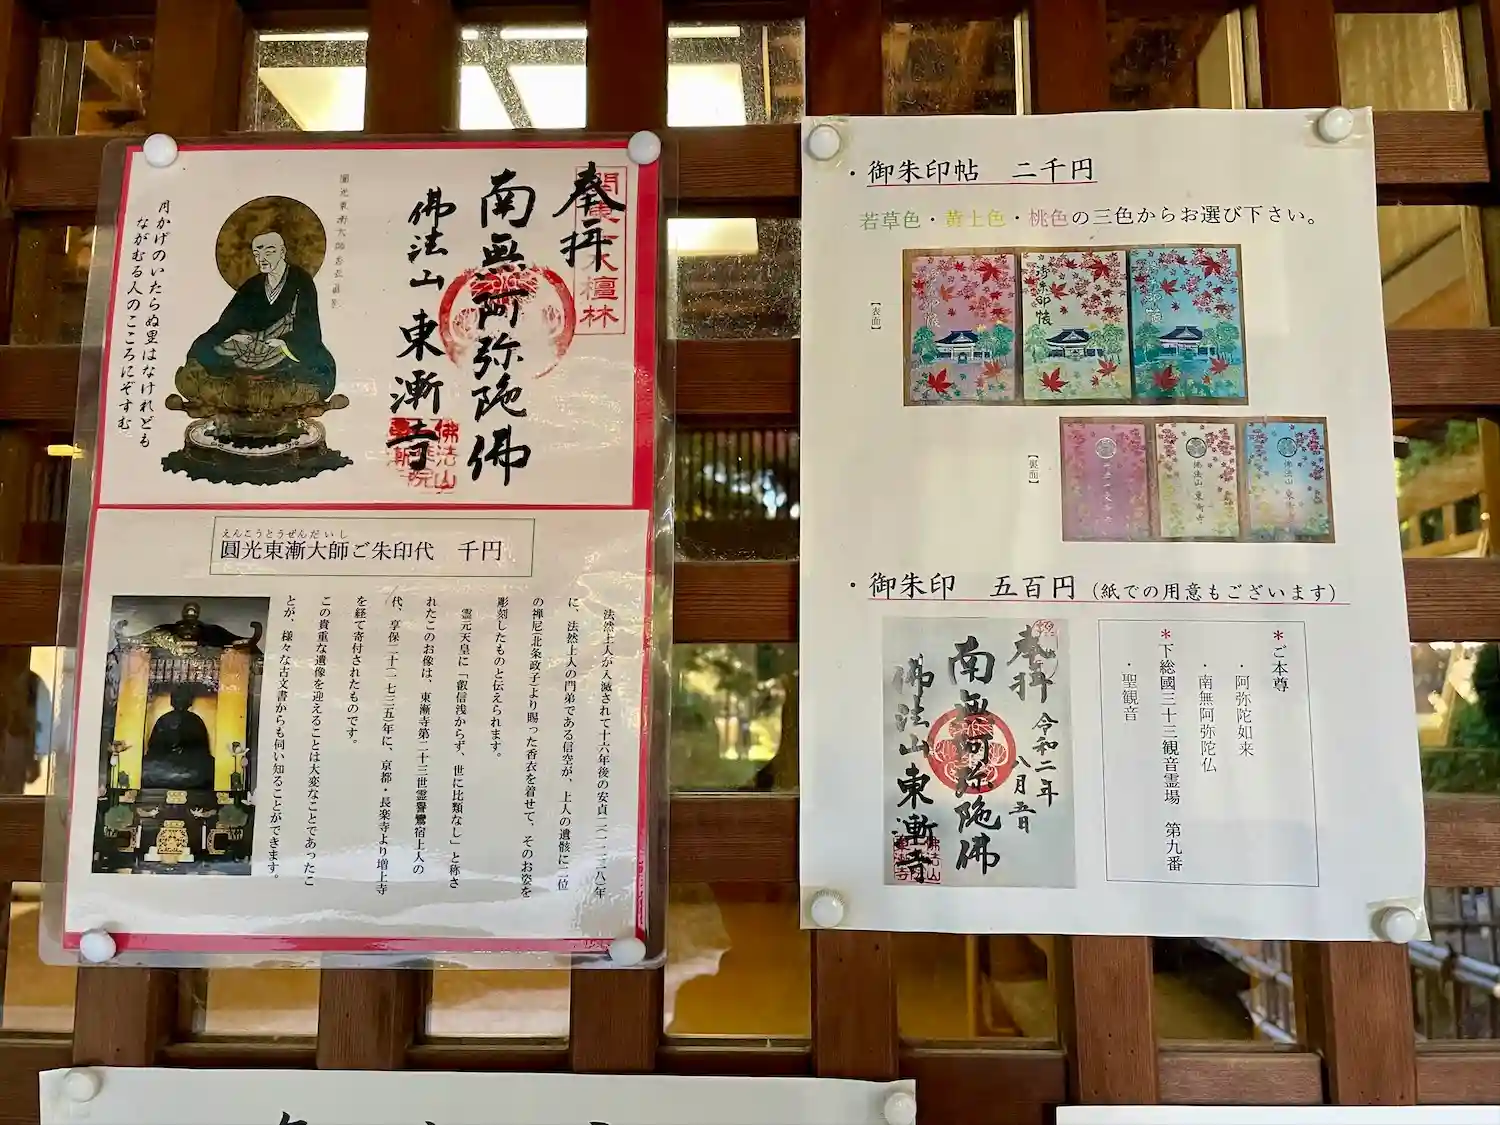 奉拝
関東十八檀林
南無阿弥陀佛
佛法山 東漸寺
月かげのいたらぬ里はなけれども
ながむる人のこころにぞすむ
えんこうとうぜんだいし
圓光東漸大師ご朱印代 千円
法然上人が入滅されて十六年後の安貞二(一二二八)年
に、法然上人の門弟である信空が、上人の遺骸に二位
の禅尼(北条政子)より賜った香衣を着せて、そのお姿を
彫刻したものと伝えられます。
霊元天皇に「叡信浅からず、世に比類なし」と称さ
れたこのお像は、東漸寺第二十三世霊誉鸞宿上人の
代、享保二十(一七三五)年に、京都・長楽寺より増上寺
を経て寄付されたものです。
この貴重な遺像を迎えることは大変なことであったこ
とが、様々な古文書からも伺い知ることができます。
・御朱印帖 二千円
若草色・黄土色・桃色の三色からお選び下さい。
【表面】
御朱印帳
【裏面】
佛法山 東漸寺
佛法山 東漸寺
佛法山 東漸寺
・御朱印 五百円(紙での用意もございます)
奉拝 令和二年
八月五日
南無阿弥陀佛
佛法山東漸寺
*ご本尊
・阿弥陀如来
・南無阿弥陀仏
*下総國三十三観音霊場 第九番
・聖観音